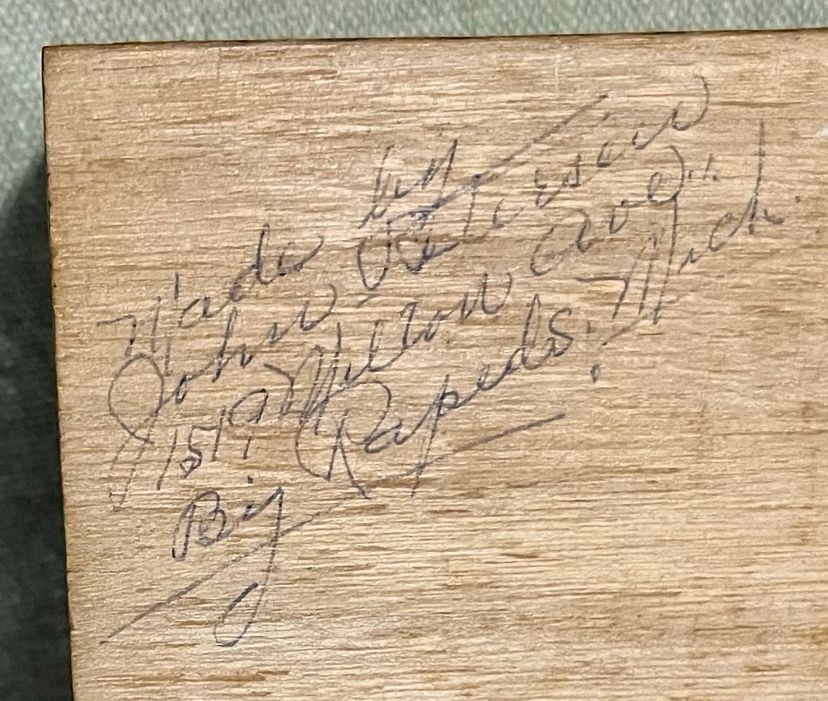 Made by
John Peterson
519 Milton Ave.
Big Rapids, Mich.